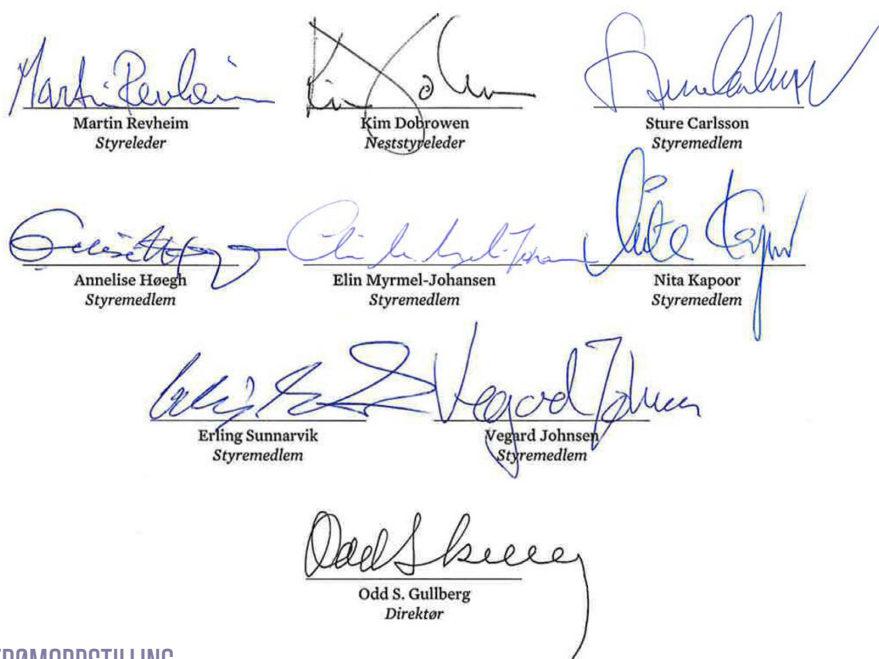 Martin Revheim
Martin Revheim
Styreleder
Kim Dobrowen
Neststyreleder
Sture Carlsson
Styremedlem
Annelise Høegh
Styremedlem
Elin Myrmel-Johansen
Styremedlem
Nita Kapoor
Nita Kapoor
Styremedlem
Erling Sunnarvik
Styremedlem
Vegard Johnsen
Vegard Johnsen
Styremedlem
Odd S. Gullberg
Direktør